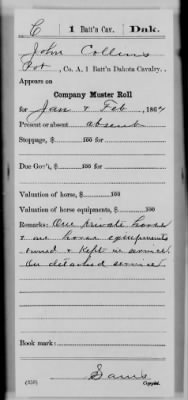 C 1 Batt'n Cav. Dak.
John Collins
Pvt, Co. A, 1 Batt'n Dakota Cavalry.
Appears on
Company Muster Roll
for Jan & Feb, 1864
Present or absent absent
Stoppage, $ 100 for
Due Gov't, $ 100 for
Valuation of horse, $ 100
Valuation of horse equipments, $ 100
Remarks: One private horse
& one horse equipments
owned & kept in service
On detached service
Book mark:
(858) Copyist.